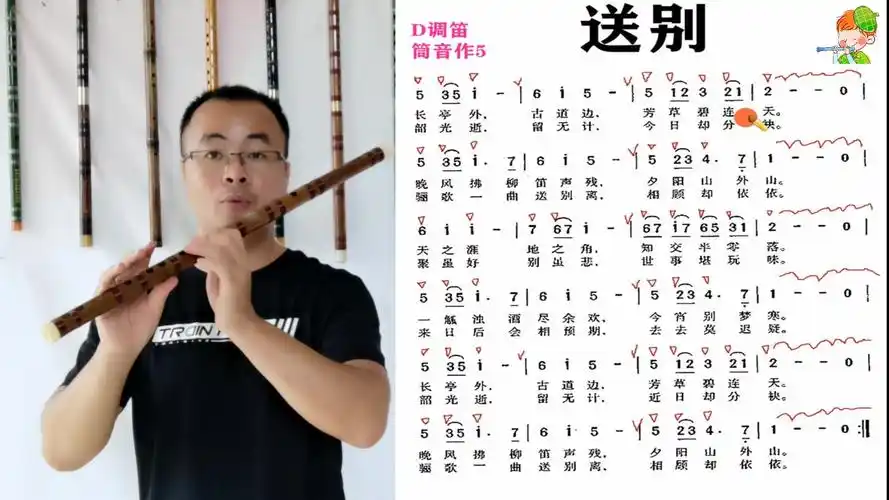 D调笛
筒音作5
送别
5 35 i - | 6 i 5 - | 5 12 3 21 | 2 - - 0 |
长亭外, 古道边, 芳草碧连天。
韶光逝, 留无计, 今日却分袂。
5 35 i. 7 | 6 i 5 - | 5 23 4. 7 | 1 - - 0 |
晚风拂柳笛声残, 夕阳山外山。
骊歌一曲送别离, 相顾却依依。
6 i i - | 7 67 i - | 67 i7 65 31 | 2 - - 0 |
天之涯 地之角, 知交半零落。
聚虽好 别虽悲, 世事堪玩味。
5 35 i. 7 | 6 i 5 - | 5 23 4. 7 | 1 - - 0 |
一觚浊酒尽余欢, 今宵别梦寒。
来日后会相预期, 去去莫迟疑。
5 35 i - | 6 i 5 - | 5 12 3 21 | 2 - - 0 |
长亭外, 古道边, 芳草碧连天。
韶光逝, 留无计, 近日却分袂。
5 35 i. 7 | 6 i 5 - | 5 23 4. 7 | 1 - - 0 :||
晚风拂柳笛声残, 夕阳山外山。
骊歌一曲送别离, 相顾却依依。